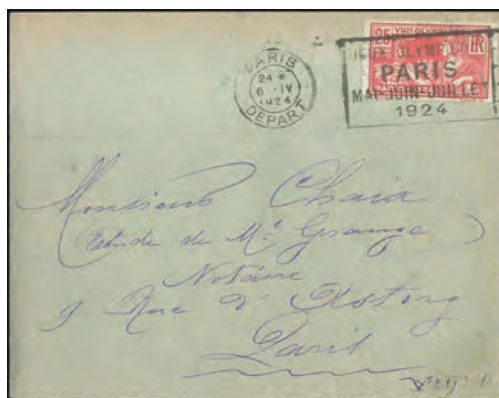 PARIS
24 *
6 · IV
1924
DEPART
25 VIIIe OLYMPIADE RF
JEUX OLYMPIQUES
PARIS
MAI-JUIN-JUILLET
1924
Monsieur Chaix
(Etude de Me Grange)
Notaire
9 Rue d'Astorg
Paris